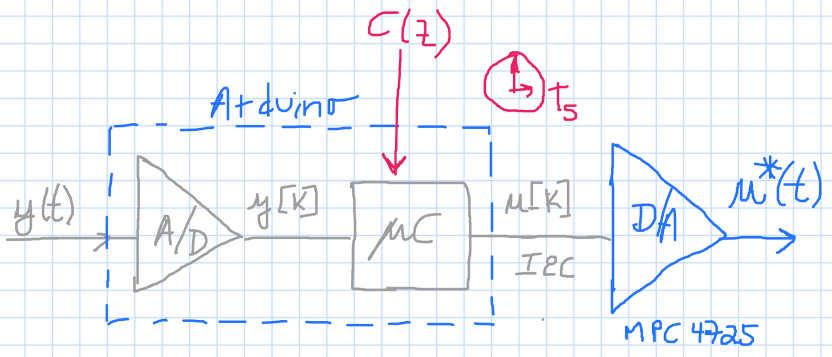 C(z)
Arduino
t_s
y(t)
A/D
y[k]
μC
u[k]
I2C
D/A
u*(t)
MPC 4725